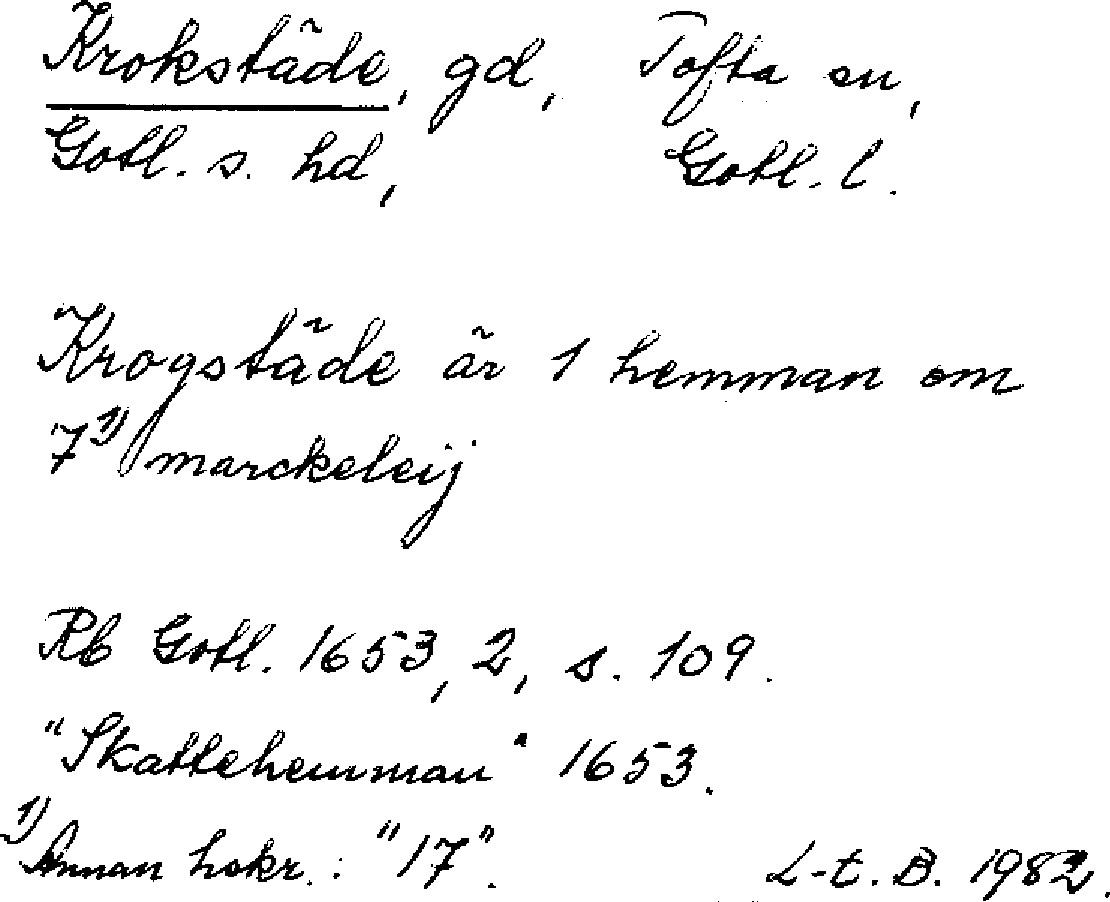 Krokstäde, gd, Tofta sn,
Gotl. s. hd, Gotl. l.
Krogstäde är 1 hemman om
7 1) marckeleij
Rb Gotl. 1653, 2, s. 109.
"Skattehemman" 1653.
1) Annan hskr.: "17". L-t. B. 1982.